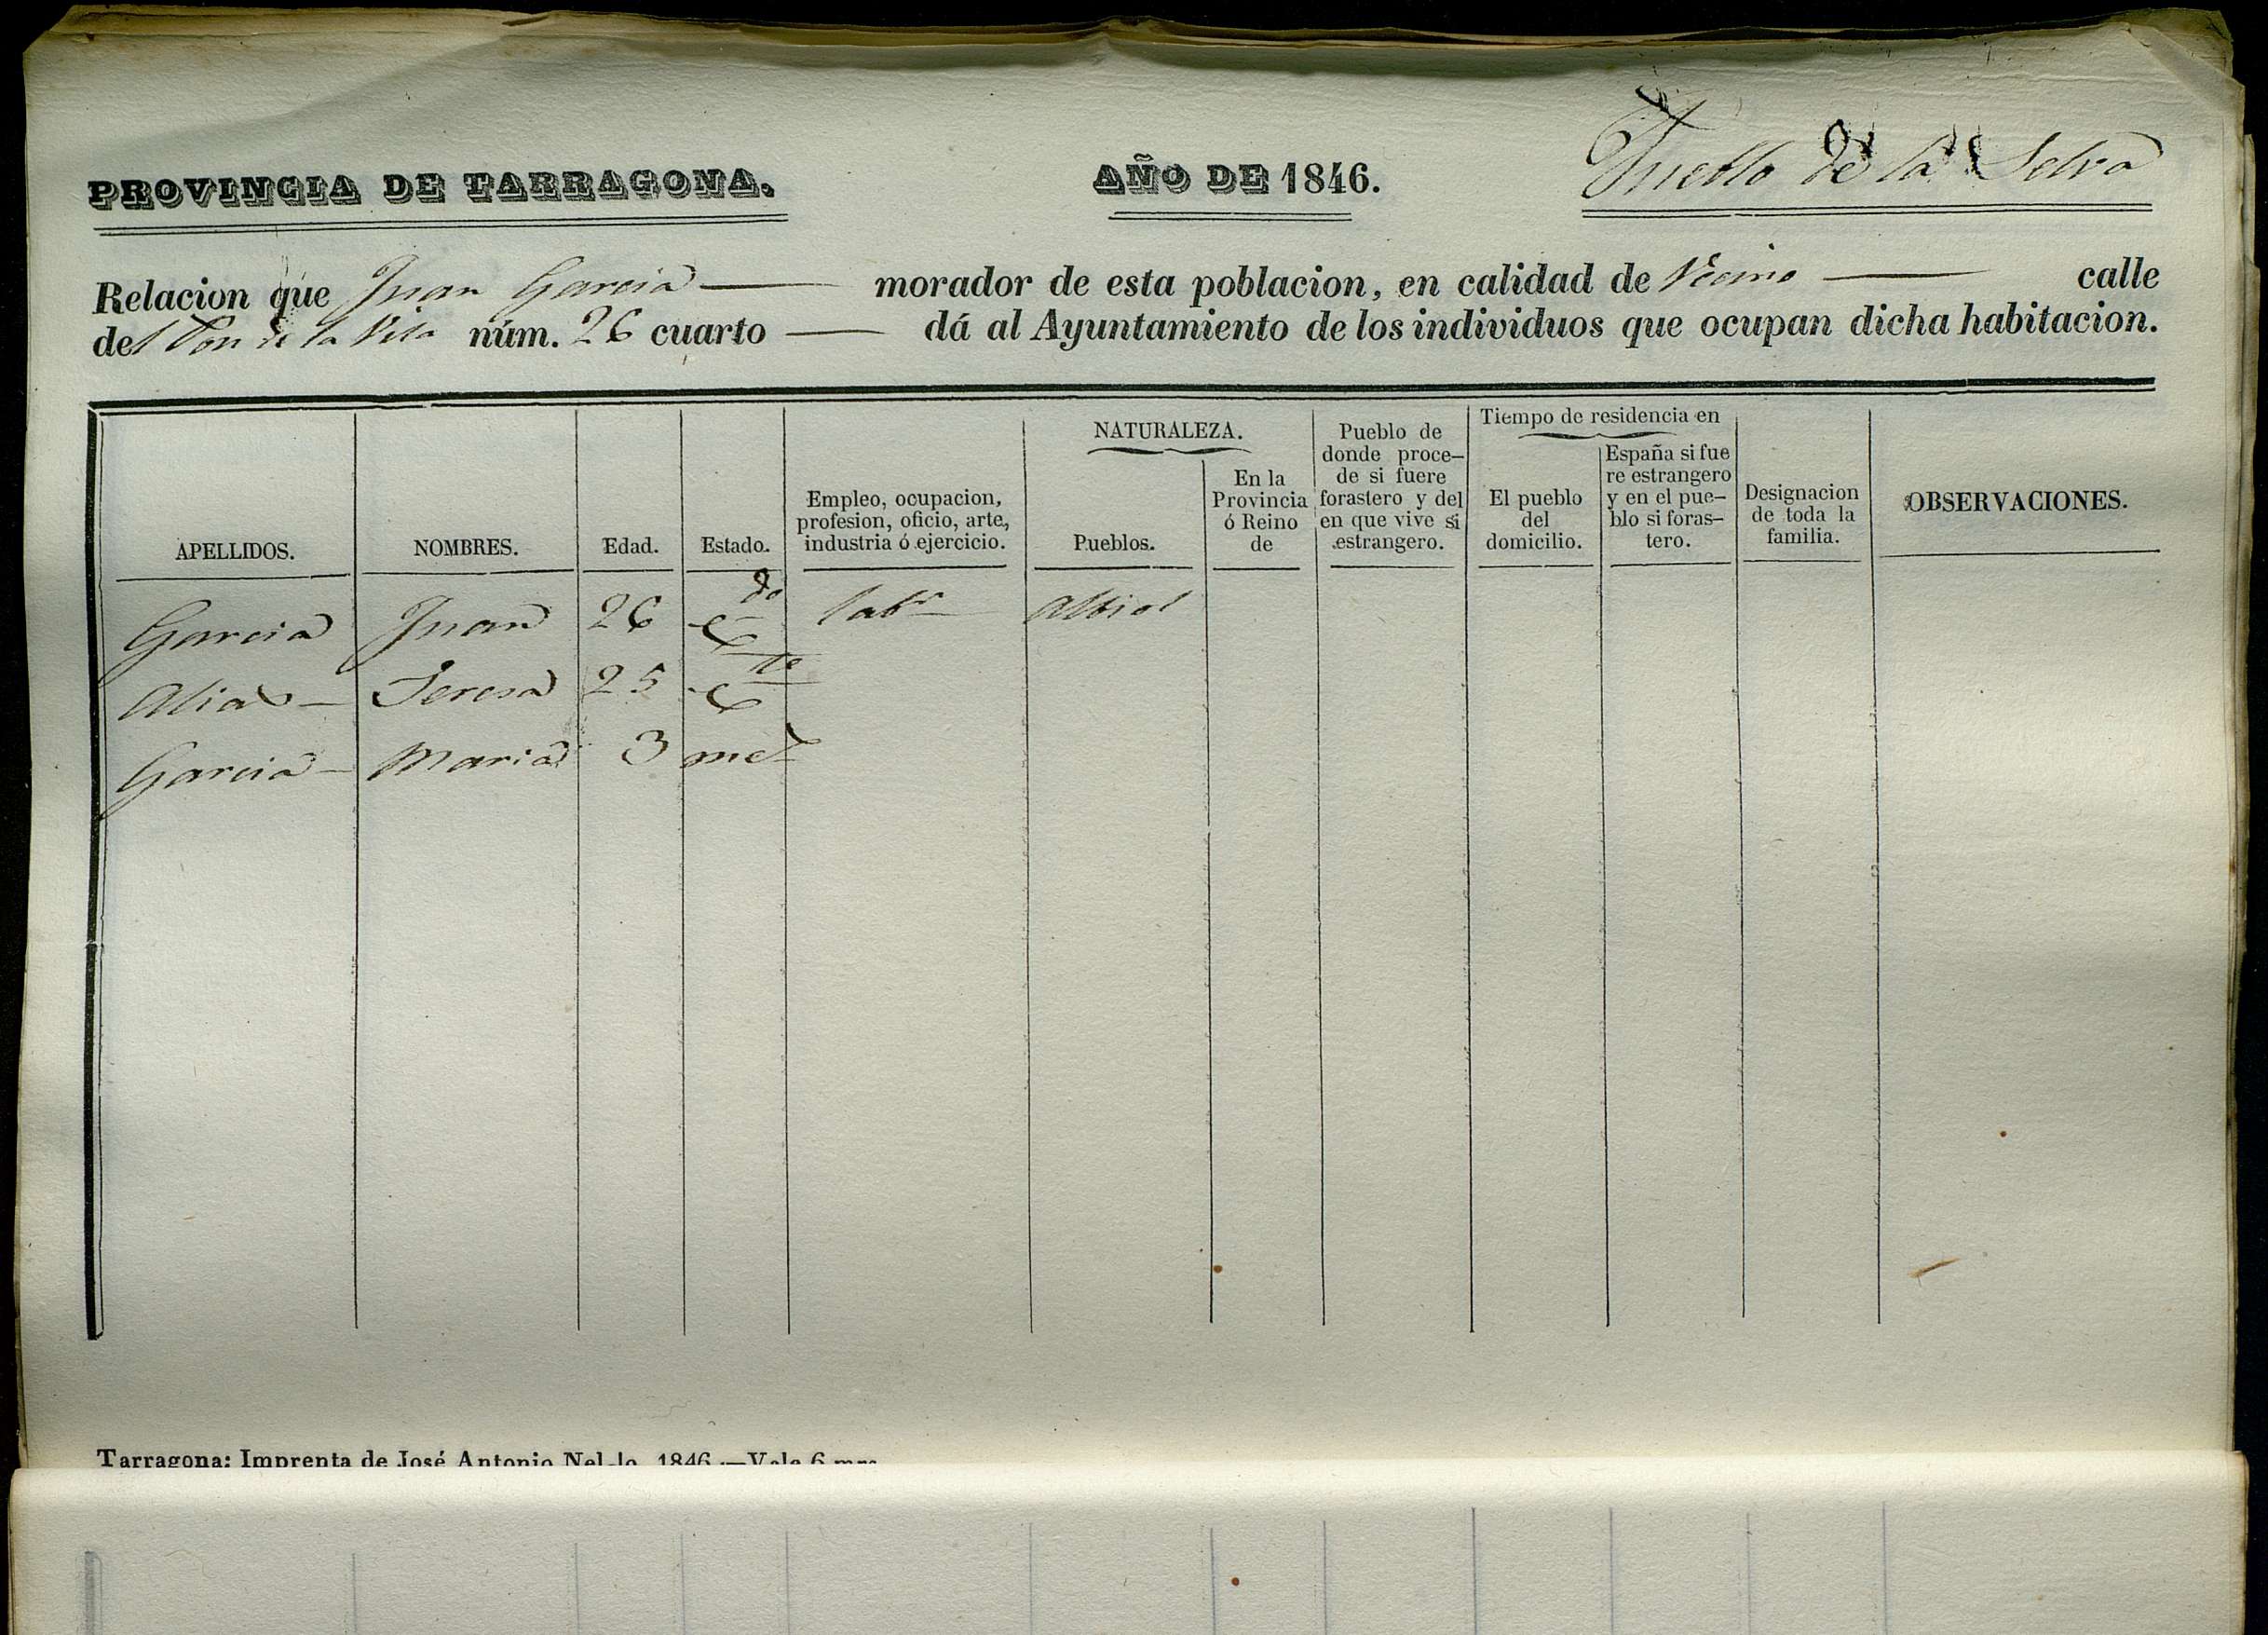 PROVINCIA DE TARRAGONA.
AÑO DE 1846.
Pueblo de la Selva
Relacion que Juan Garcia morador de esta poblacion, en calidad de Vecino calle
del de la Vila núm. 26 cuarto — dá al Ayuntamiento de los individuos que ocupan dicha habitacion.
APELLIDOS.
NOMBRES.
Edad.
Estado.
Empleo, ocupacion,
profesion, oficio, arte,
industria ó ejercicio.
NATURALEZA.
Pueblos.
En la
Provincia
ó Reino
de
Pueblo de
donde proce-
de si fuere
forastero y del
en que vive si
estrangero.
Tiempo de residencia en
El pueblo
del
domicilio.
España si fue
re estrangero
y en el pue-
blo si foras-
tero.
Designacion
de toda la
familia.
OBSERVACIONES.
Garcia Juan 26 C.do labr Albiol
Teresa 25 C.te
Garcia — Maria 3
Tarragona: Imprenta de José Antonio Nel-lo. 1846.—Vale 6 mrs.